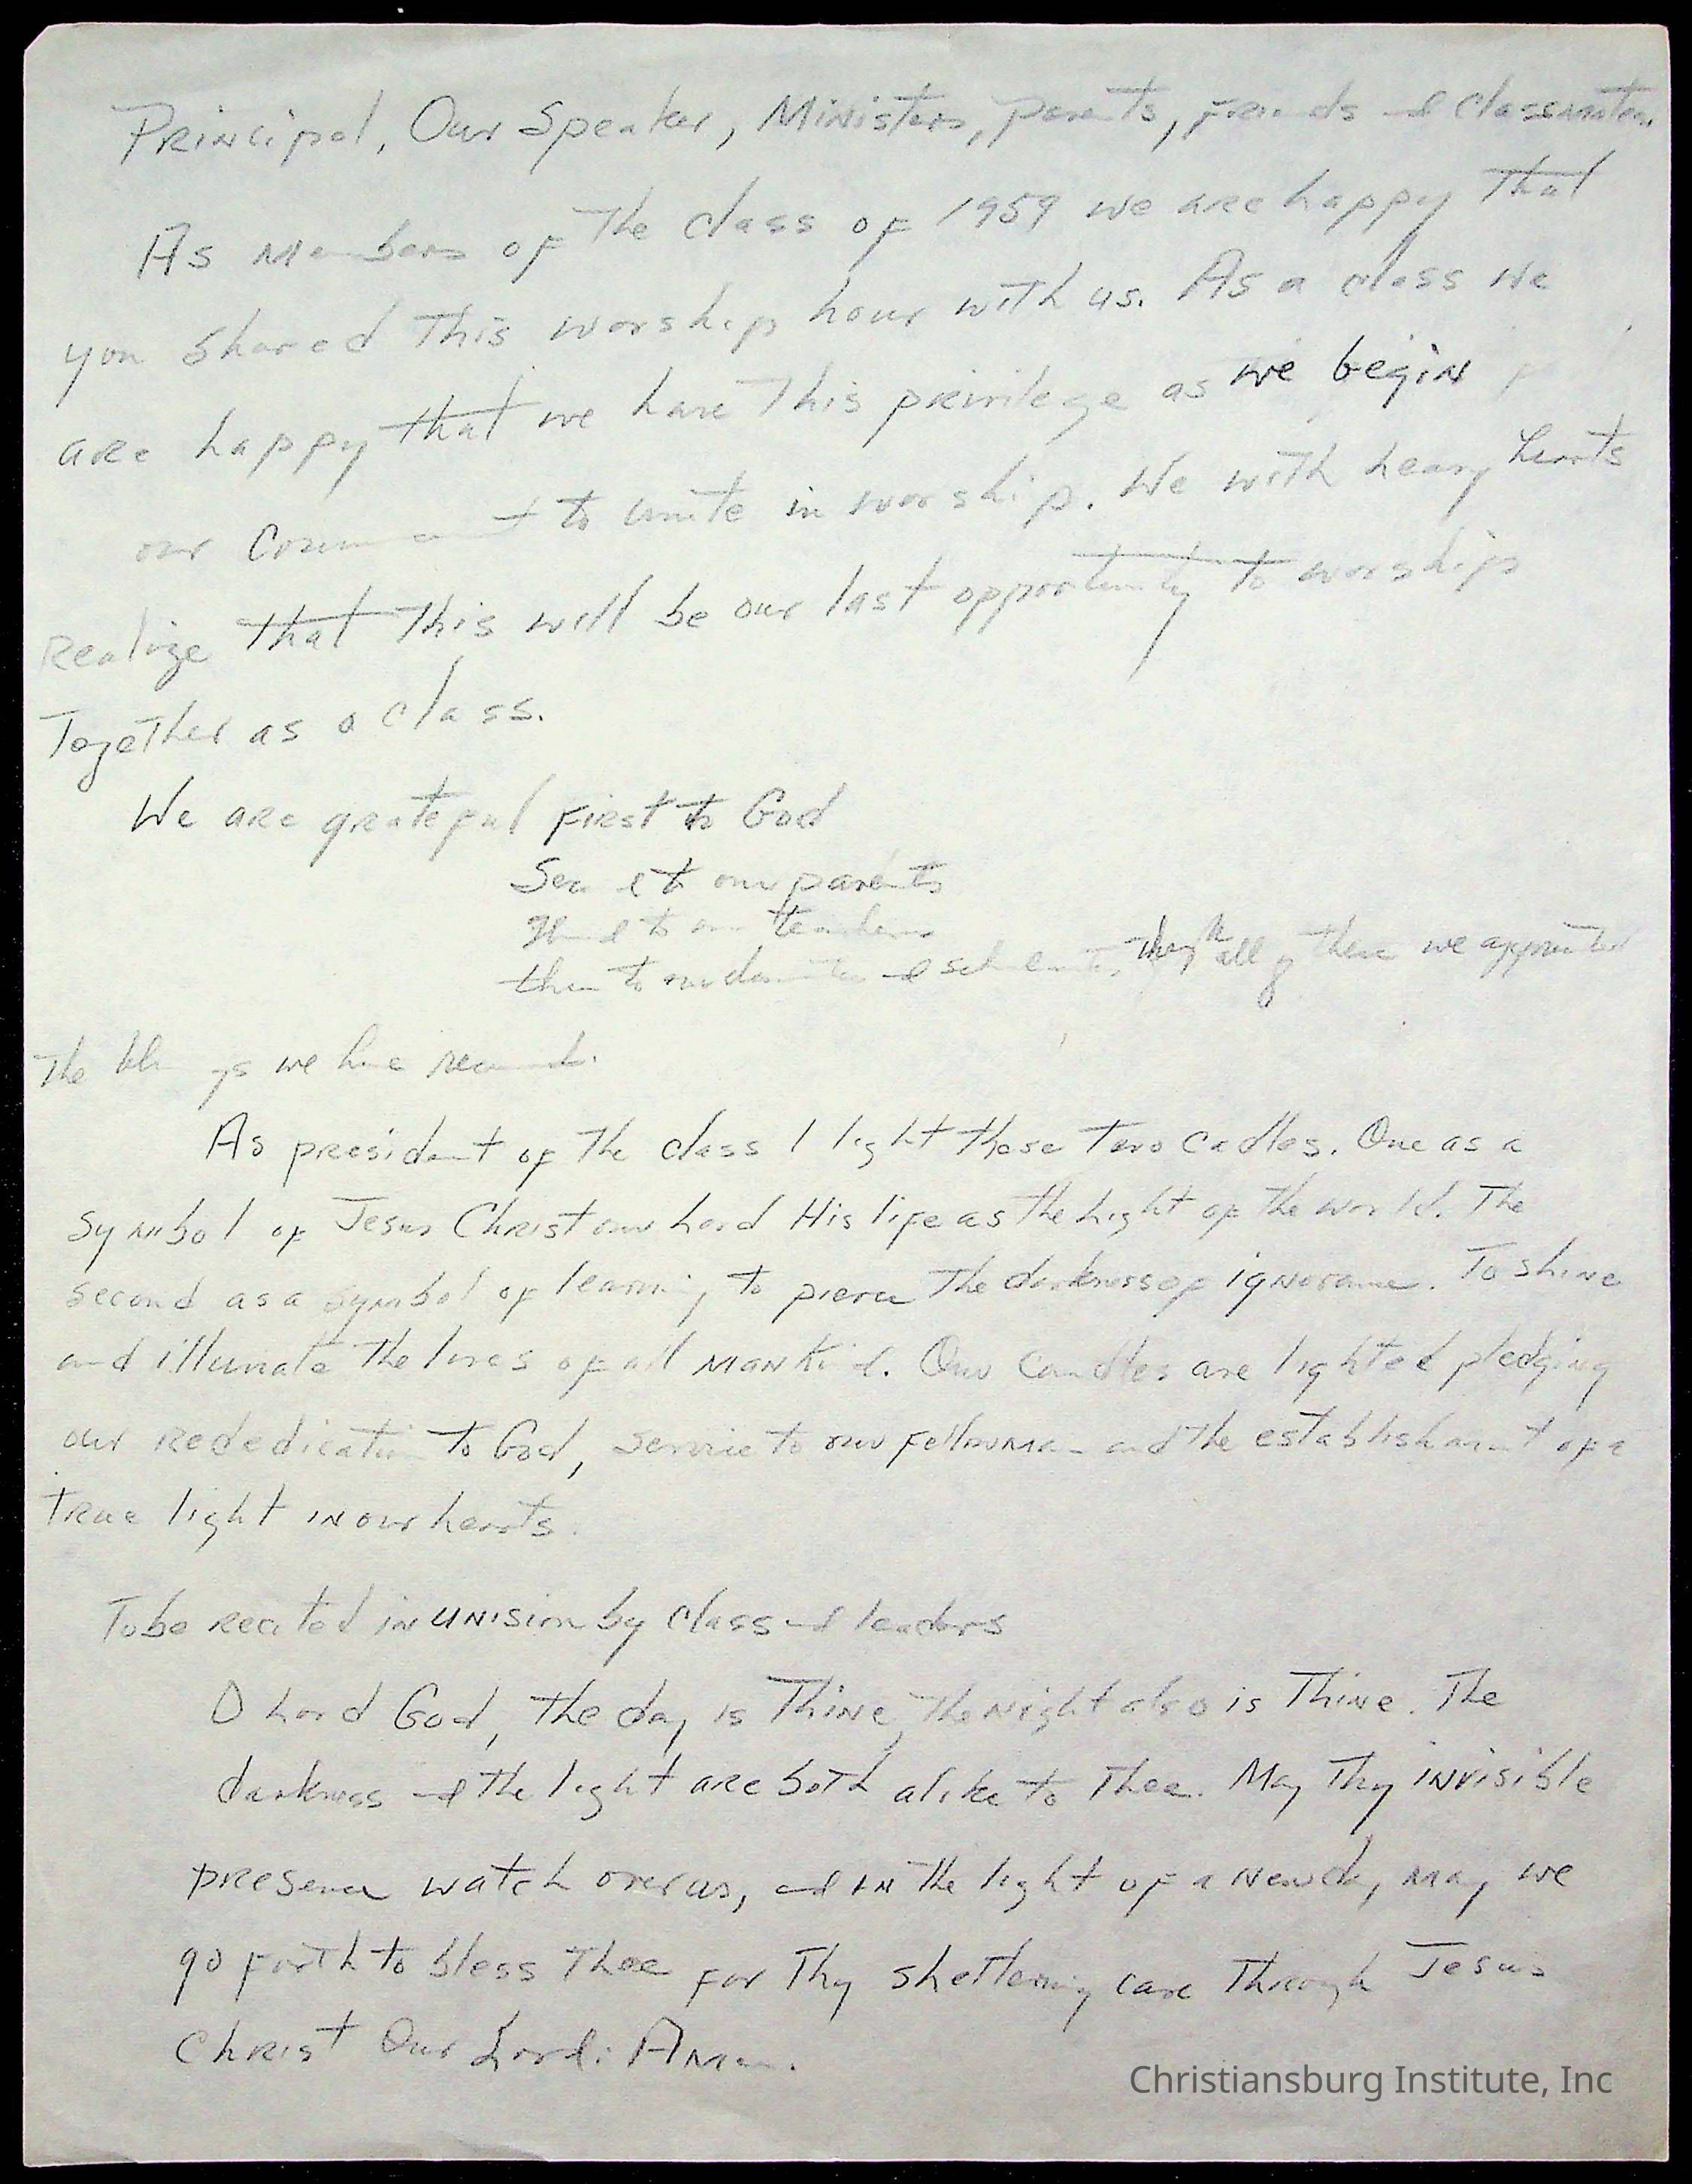 Principal, Our Speaker, Ministers, parents, friends and classmates.
As Members of The class of 1959 we are happy That
you shared This worship hour with us. As a class we
are happy that we have This privilege as we begin
our to unite in worship. We with heavy hearts
Realize that This will be our last opportunity to worship
Together as a class.
We are grateful first to God
Second to our parents
Third to our teachers
then to our and all of these we
The blessings we have received.
As president of The class I light these Two cadles. One as a
symbol of Jesus Christ our Lord His life as the Light of the world. The
second as a symbol of learning to pierce The darkness of ignorance. To shine
and illumate The lives of all Mankind. Our Candles are lighted pledging
our Rededication to God, service to our fellowman and The establishment of a
True light in our hearts.
To be Recited in unision by class and leaders
O Lord God, the day is Thine, The Night also is Thine. The
darkness and the light are both alike to Thee. May Thy invisible
presence watch over us, and in The light of a New day, may we
go forth to bless Thee for Thy sheltering care Through Jesus
Christ Our Lord: Amen.
Christiansburg Institute, Inc